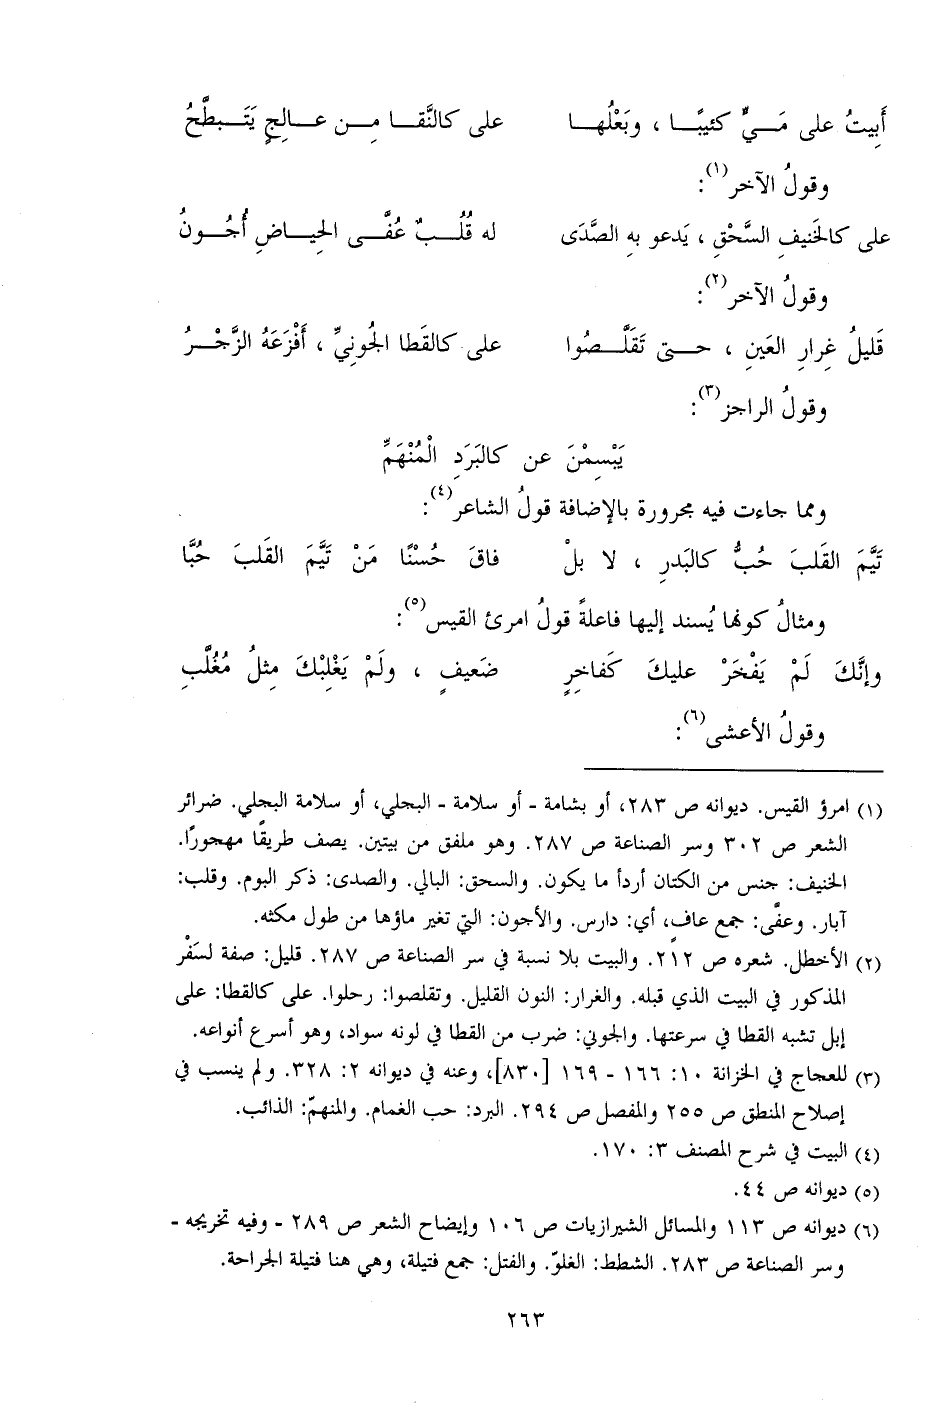 أَبِيتُ على مَـيٍّ كئيبًـا ، وبَعْلُهـا على كالنَّقـا مِـن عـالِجٍ يَتَـبطَّحُ
وقولُ الآخر(١):
على كالخَنيفِ السَّحْقِ ، يَدعو بهِ الصَّدَى له قُلُـبٌ عُفَّـى الحِيـاضِ أُجُـونُ
وقولُ الآخر(٢):
قَليلُ غِرارِ العَينِ ، حـتى تَقَلَّـصُوا على كالقَطا الجُونيِّ ، أَفْزَعَهُ الزَّجْـرُ
وقولُ الراجز(٣):
يَبْسِمْنَ عن كالبَرَدِ الْمُنْهَمِّ
ومما جاءت فيه مجرورة بالإضافة قولُ الشاعر(٤):
تَيَّمَ القَلبَ حُبُّ كالبَدرِ ، لا بلْ فاقَ حُسْنًا مَنْ تَيَّمَ القَلبَ حُبَّا
ومثالُ كونها يُسند إليها فاعلةً قولُ امرئ القيس(٥):
وإنَّكَ لَمْ يَفْخَرْ عليكَ كَفاخِرٍ ضَعيفٍ ، ولَمْ يَغْلِبْكَ مِثلُ مُغَلَّبِ
وقولُ الأعشى(٦):
(١) امرؤ القيس. ديوانه ص ٢٨٣، أو بشامة - أو سلامة - البجلي، أو سلامة البجلي. ضرائر
الشعر ص ٣٠٢ وسر الصناعة ص ٢٨٧. وهو ملفق من بيتين. يصف طريقًا مهجورًا.
الخنيف: جنس من الكتان أردأ ما يكون. والسحق: البالي. والصدى: ذكر البوم. وقلب:
آبار. وعفَّى: جمع عافٍ، أي: دارس. والأجون: التي تغير ماؤها من طول مكثه.
(٢) الأخطل. شعره ص ٢١٢. والبيت بلا نسبة في سر الصناعة ص ٢٨٧. قليل: صفة لسَفْر
المذكور في البيت الذي قبله. والغرار: النون القليل. وتقلصوا: رحلوا. على كالقطا: على
إبل تشبه القطا في سرعتها. والجوني: ضرب من القطا في لونه سواد، وهو أسرع أنواعه.
(٣) للعجاج في الخزانة ١٠: ١٦٦ - ١٦٩ [٨٣٠]، وعنه في ديوانه ٢: ٣٢٨. ولم ينسب في
إصلاح المنطق ص ٢٥٥ والمفصل ص ٢٩٤. البرد: حب الغمام. والمنهمّ: الذائب.
(٤) البيت في شرح المصنف ٣: ١٧٠.
(٥) ديوانه ص ٤٤.
(٦) ديوانه ص ١١٣ والمسائل الشيرازيات ص ١٠٦ وإيضاح الشعر ص ٢٨٩ - وفيه تخريجه -
وسر الصناعة ص ٢٨٣. الشطط: الغلوّ. والفتل: جمع فتيلة، وهي هنا فتيلة الجراحة.
٢٦٣